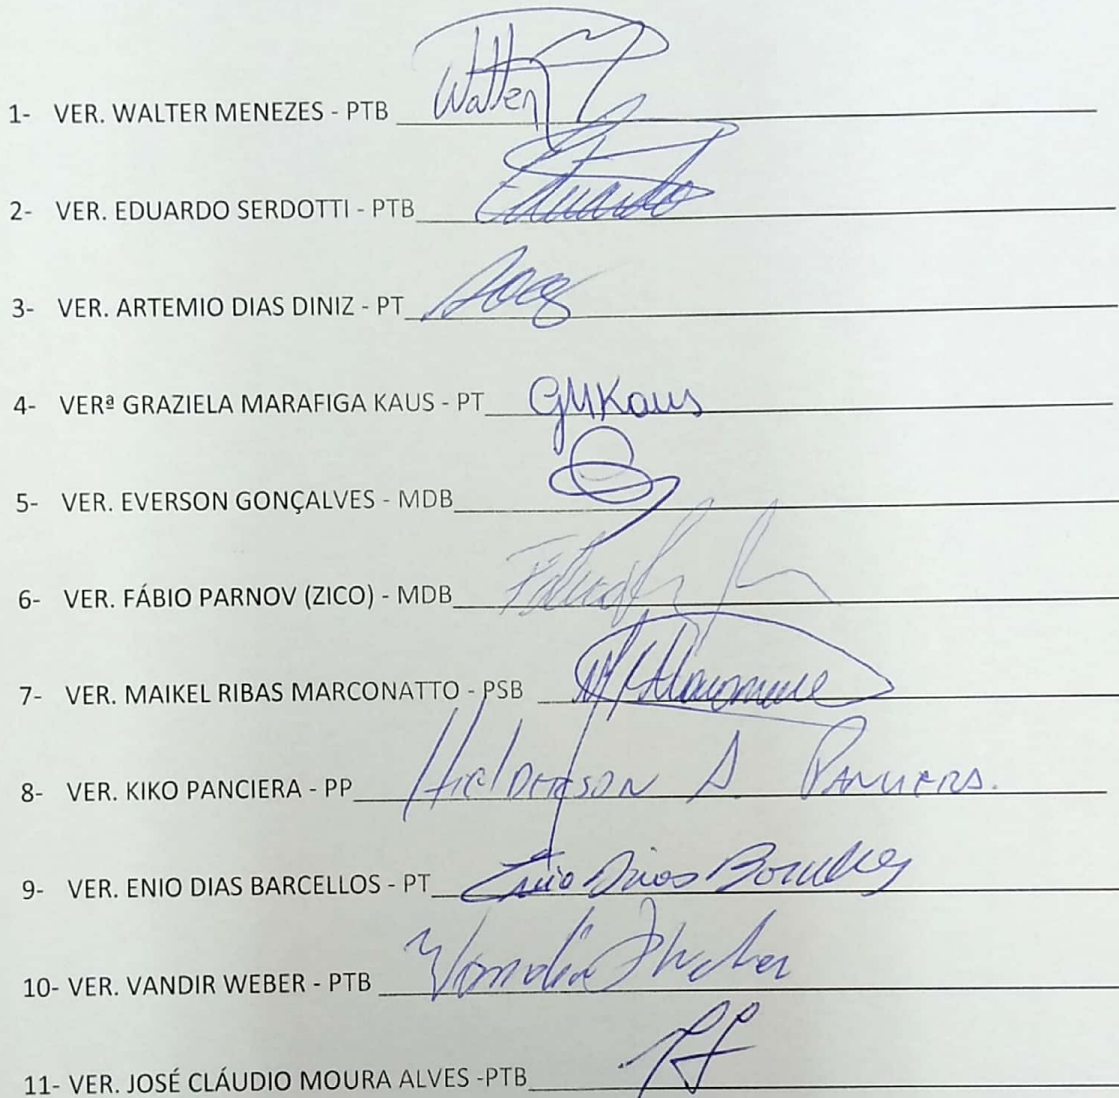 1- VER. WALTER MENEZES - PTB Walter
2- VER. EDUARDO SERDOTTI - PTB Eduardo
3- VER. ARTEMIO DIAS DINIZ - PT
4- VERª GRAZIELA MARAFIGA KAUS - PT GMKaus
5- VER. EVERSON GONÇALVES - MDB
6- VER. FÁBIO PARNOV (ZICO) - MDB
7- VER. MAIKEL RIBAS MARCONATTO - PSB
8- VER. KIKO PANCIERA - PP A. PANCIERA.
9- VER. ENIO DIAS BARCELLOS - PT Enio Dias Barcellos
10- VER. VANDIR WEBER - PTB Vandir Weber
11- VER. JOSÉ CLÁUDIO MOURA ALVES -PTB